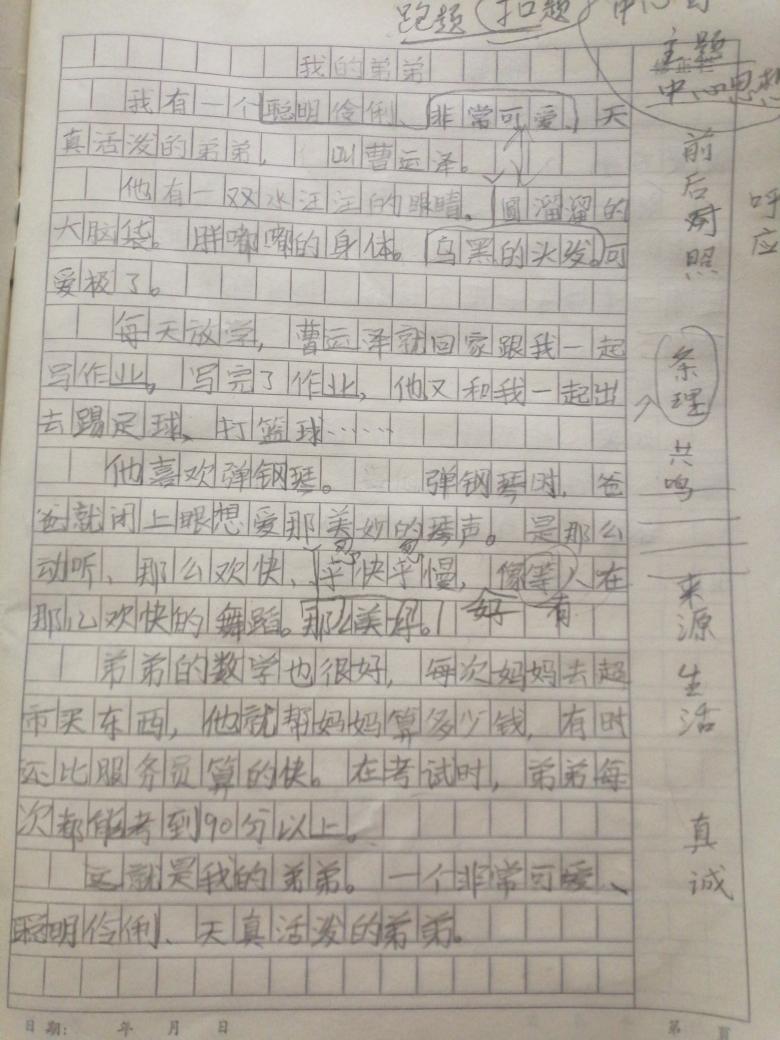 跑题 扣题 中心句
主题
中心思想
我的弟弟
我有一个聪明伶俐、非常可爱、天
真活泼的弟弟, 叫曹运泽。
他有一双水汪汪的眼睛。圆溜溜的
大脑袋。胖嘟嘟的身体。乌黑的头发。可
爱极了。
每天放学,曹运泽就回家跟我一起
写作业。写完了作业,他又和我一起出
去踢足球、打篮球……
他喜欢弹钢琴。 弹钢琴时,爸
爸就闭上眼想爱那美妙的琴声。是那么
动听、那么欢快、平快平慢,像等人在
忽 忽
那么欢快的舞蹈。那么美好。
好 有
弟弟的数学也很好,每次妈妈去超
市买东西,他就帮妈妈算多少钱,有时
还比服务员算的快。在考试时,弟弟每
次都能考到90分以上。
这就是我的弟弟。一个非常可爱、
聪明伶俐、天真活泼的弟弟。
前后对照
呼应
条理
共鸣
来源生活
真诚
日期: 年 月 日
第 页